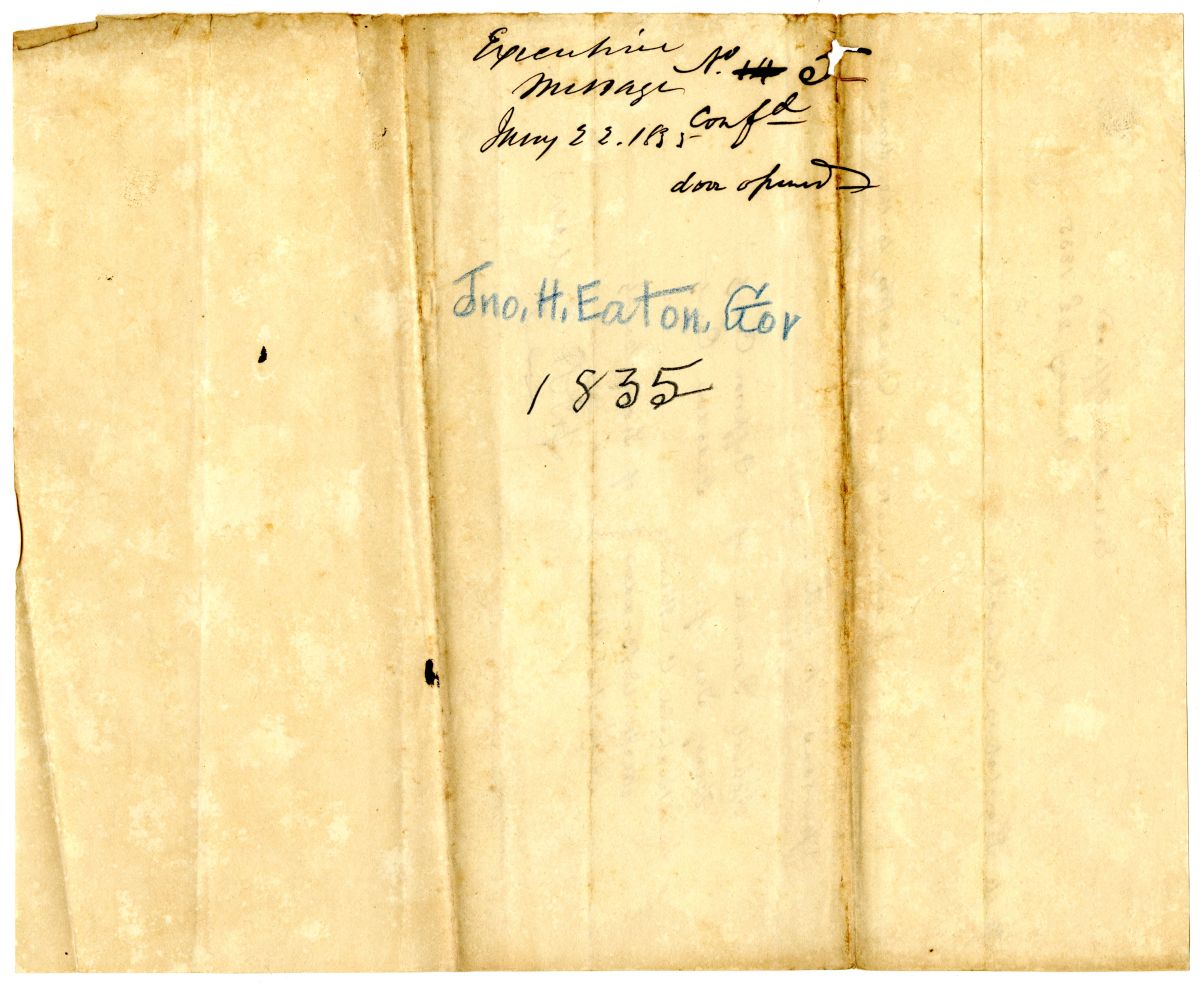 Executive
Message No. 14 5
Jany 22. 1835 Confd
door opened
Jno. H. Eaton, Gov
1835